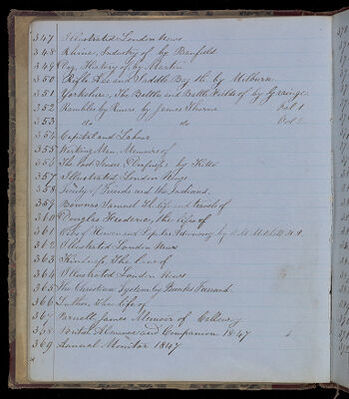 347 Illustrated London News
348 Rhine, Industry of by Banfield
349 Dog, History of by Martin
350 Rifle Axe and Saddle Bag the by Milburn
351 Yorkshire, The Battles and Battle Fields of by Grainge
352 Rambles by Rivers by James Thorne Vol 1
353 do do Vol 2
354 Capital and Labour
355 Working Men, Memoirs of
356 The Lost Senses by Kitto
357 Illustrated London News
358 Society of Friends and the Indians
359 Bowers Samuel the life and travels of
360 Douglas Frederick, the life of
361
362 Illustrated London News
363 Kindness The Law of
364 Illustrated London News
365 The Christian System by
366 Luther, The life of
367 Parnell, James Memoir of
368 British Almanac and Companion 1847
369 Annual Monitor 1847